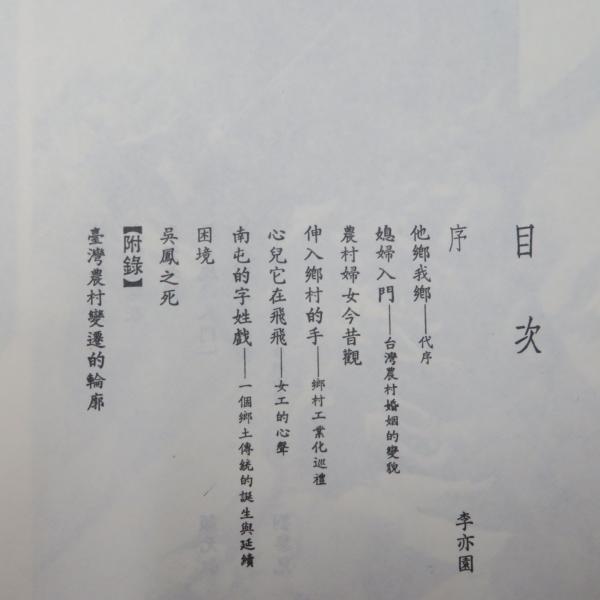 目次
序 李亦園
他鄉我鄉——代序
媳婦入門——台灣農村婚姻的變貌
農村婦女今昔觀
伸入鄉村的手——鄉村工業化巡禮
心兒它在飛飛——女工的心聲
南屯的字姓戲——一個鄉土傳統的誕生與延續
困境
吳鳳之死
【附錄】
臺灣農村變遷的輪廓